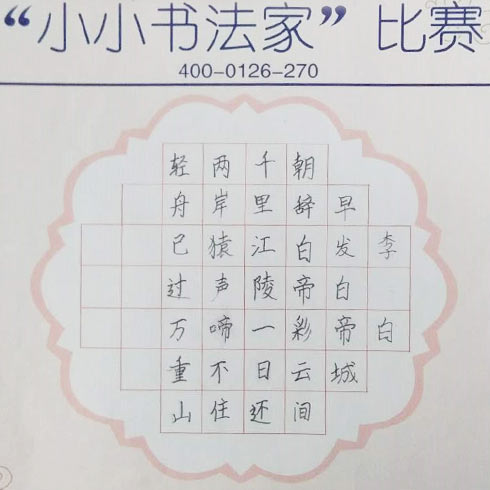 “小小书法家”比赛
400-0126-270
李白
早发白帝城
朝辞白帝彩云间
千里江陵一日还
两岸猿声啼不住
轻舟已过万重山